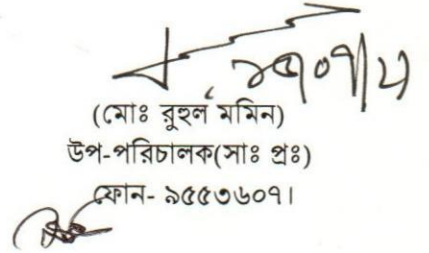 (মোঃ রুহুল মমিন)
উপ-পরিচালক(সাঃ প্রঃ)
ফোন- ৯৫৫৩৬০৭।